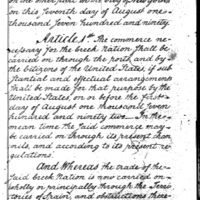 on this seventh day of August one
thousand seven hundred and ninety.
Article 1st The commerce ne-
cessary for the Creek Nation shall be
carried on through the ports, and by
the citizens of the United States, if sub-
stantial and effectual arrangements
shall be made for that purpose by the
United States, on or before the first
day of August one thousand seven
hundred and ninety two. In the
mean time the said commerce may
be carried on through its present chan-
nels, and according to its present re-
gulations.
And Whereas the trade of the
said Creek Nation is now carried on
wholly or principally through the Terri-
tories of Spain, and obstructions there